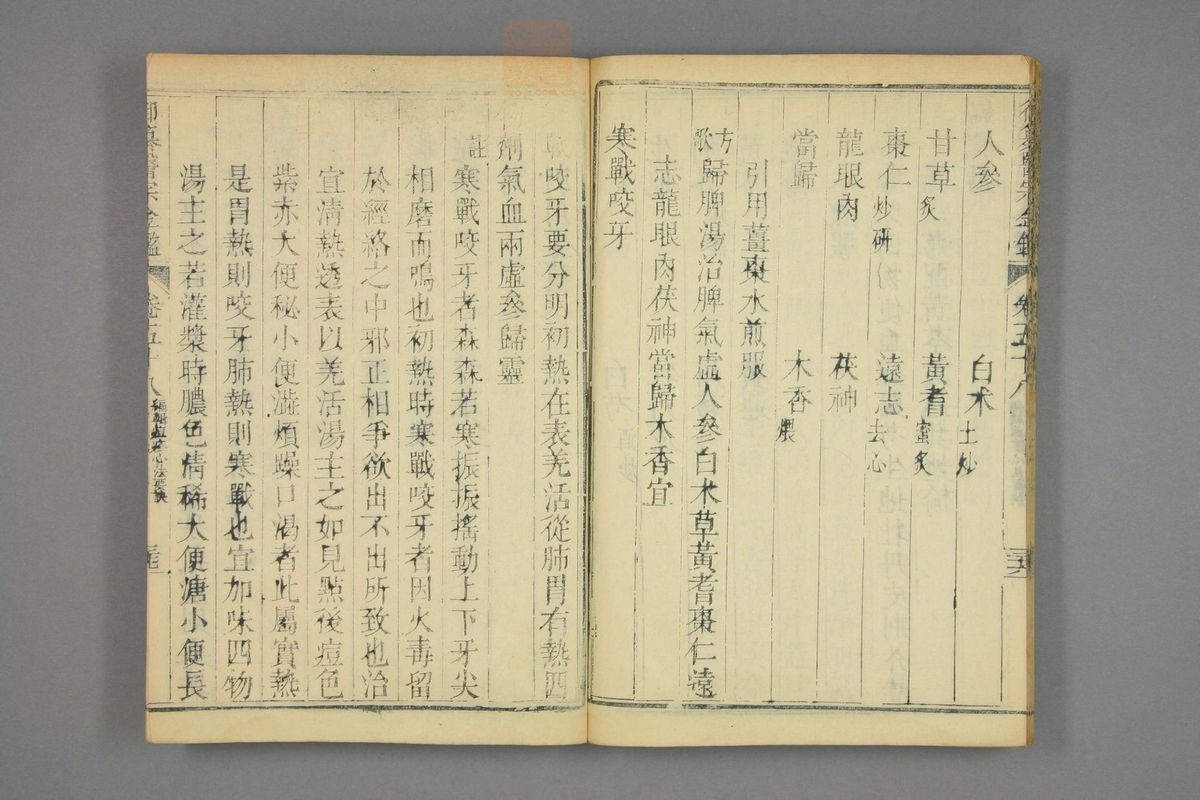 人參　白术土炒
甘草炙　黃耆蜜炙
棗仁炒研　遠志去心
龍眼肉　茯神
當歸　木香煨
引用薑棗水煎服
方歌　歸脾湯治脾氣虛人參白术草黃耆棗仁遠
志龍眼肉茯神當歸木香宜
寒戰咬牙
戰咬牙要分明初熱在表羌活從肺胃有熱四
物劑氣血兩虛參歸靈
註　寒戰咬牙者森森若寒振振搖動上下牙尖
相磨而鳴也初熱時寒戰咬牙者因火毒留
於經絡之中邪正相爭欲出不出所致也治
宜清熱透表以羌活湯主之如見點後痘色
紫赤大便秘小便澁煩躁口渴者此屬實熱
是胃熱則咬牙肺熱則寒戰也宜加味四物
湯主之若灌漿時膿色清稀大便溏小便長
御纂醫宗金鑑　卷五十八　編輯痘疹心法要訣